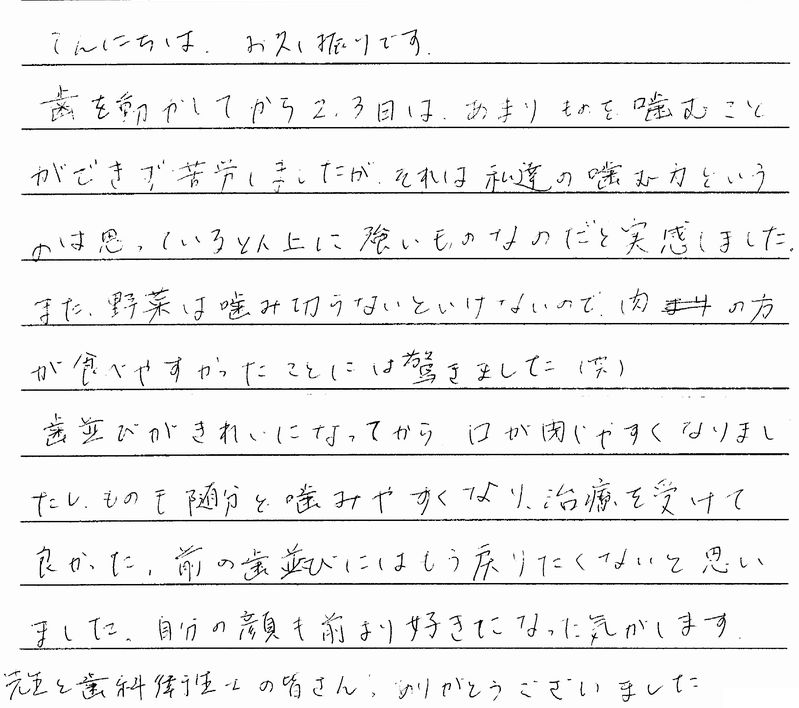 こんにちは、お久し振りです。
歯を動かしてから2、3日は、あまりものを噛むこと
ができず苦労しましたが、それは私達の噛む力という
のは思っている以上に強いものなのだと実感しました。
また、野菜は噛み切らないといけないので、肉の方
が食べやすかったことには驚きました(笑)
歯並びがきれいになってから、口が閉じやすくなりまし
たし、ものも随分と噛みやすくなり、治療を受けて
良かった、前の歯並びにはもう戻りたくないと思い
ました。自分の顔も前より好きになった気がします。
先生と歯科衛生士の皆さん、ありがとうございました